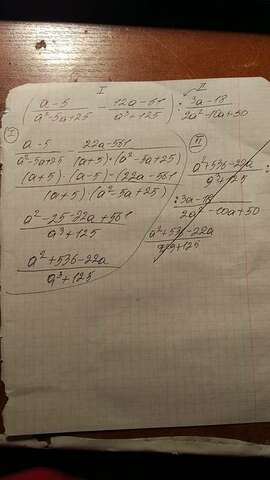 I II
( a-5 / a²-5a+25 - 12a-561 / a³+125 ) : 3a-18 / 2a²-10a+50
I
a-5 / a²-5a+25 - 22a-561 / (a+5)·(a²-5a+25)
(a+5)·(a-5)-(22a-561) / (a+5)·(a²-5a+25)
a²-25-22a+561 / a³+125
a²+536-22a / a³+125
II
a²+536-22a / a³+125 :
: 3a-18 / 2a²-10a+50
a²+536-22a / a³+125